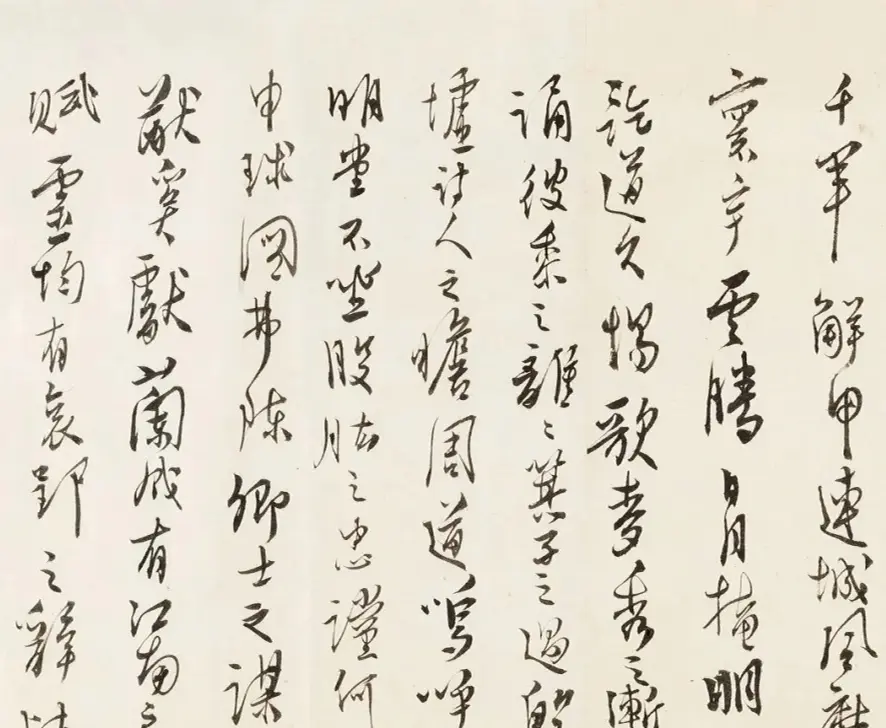 千軍解甲連城風
寰宇雲騰日月掩明
道久惕歌麥秀之漸
誦彼黍之離〻箕子之過殷
墟詩人之瞻周道嗚呼
明堂不坐股肱之忠讜何
申球圖弗陳卿士之謀
猷奚獻蘭成有江南之
賦靈均有哀郢之辭